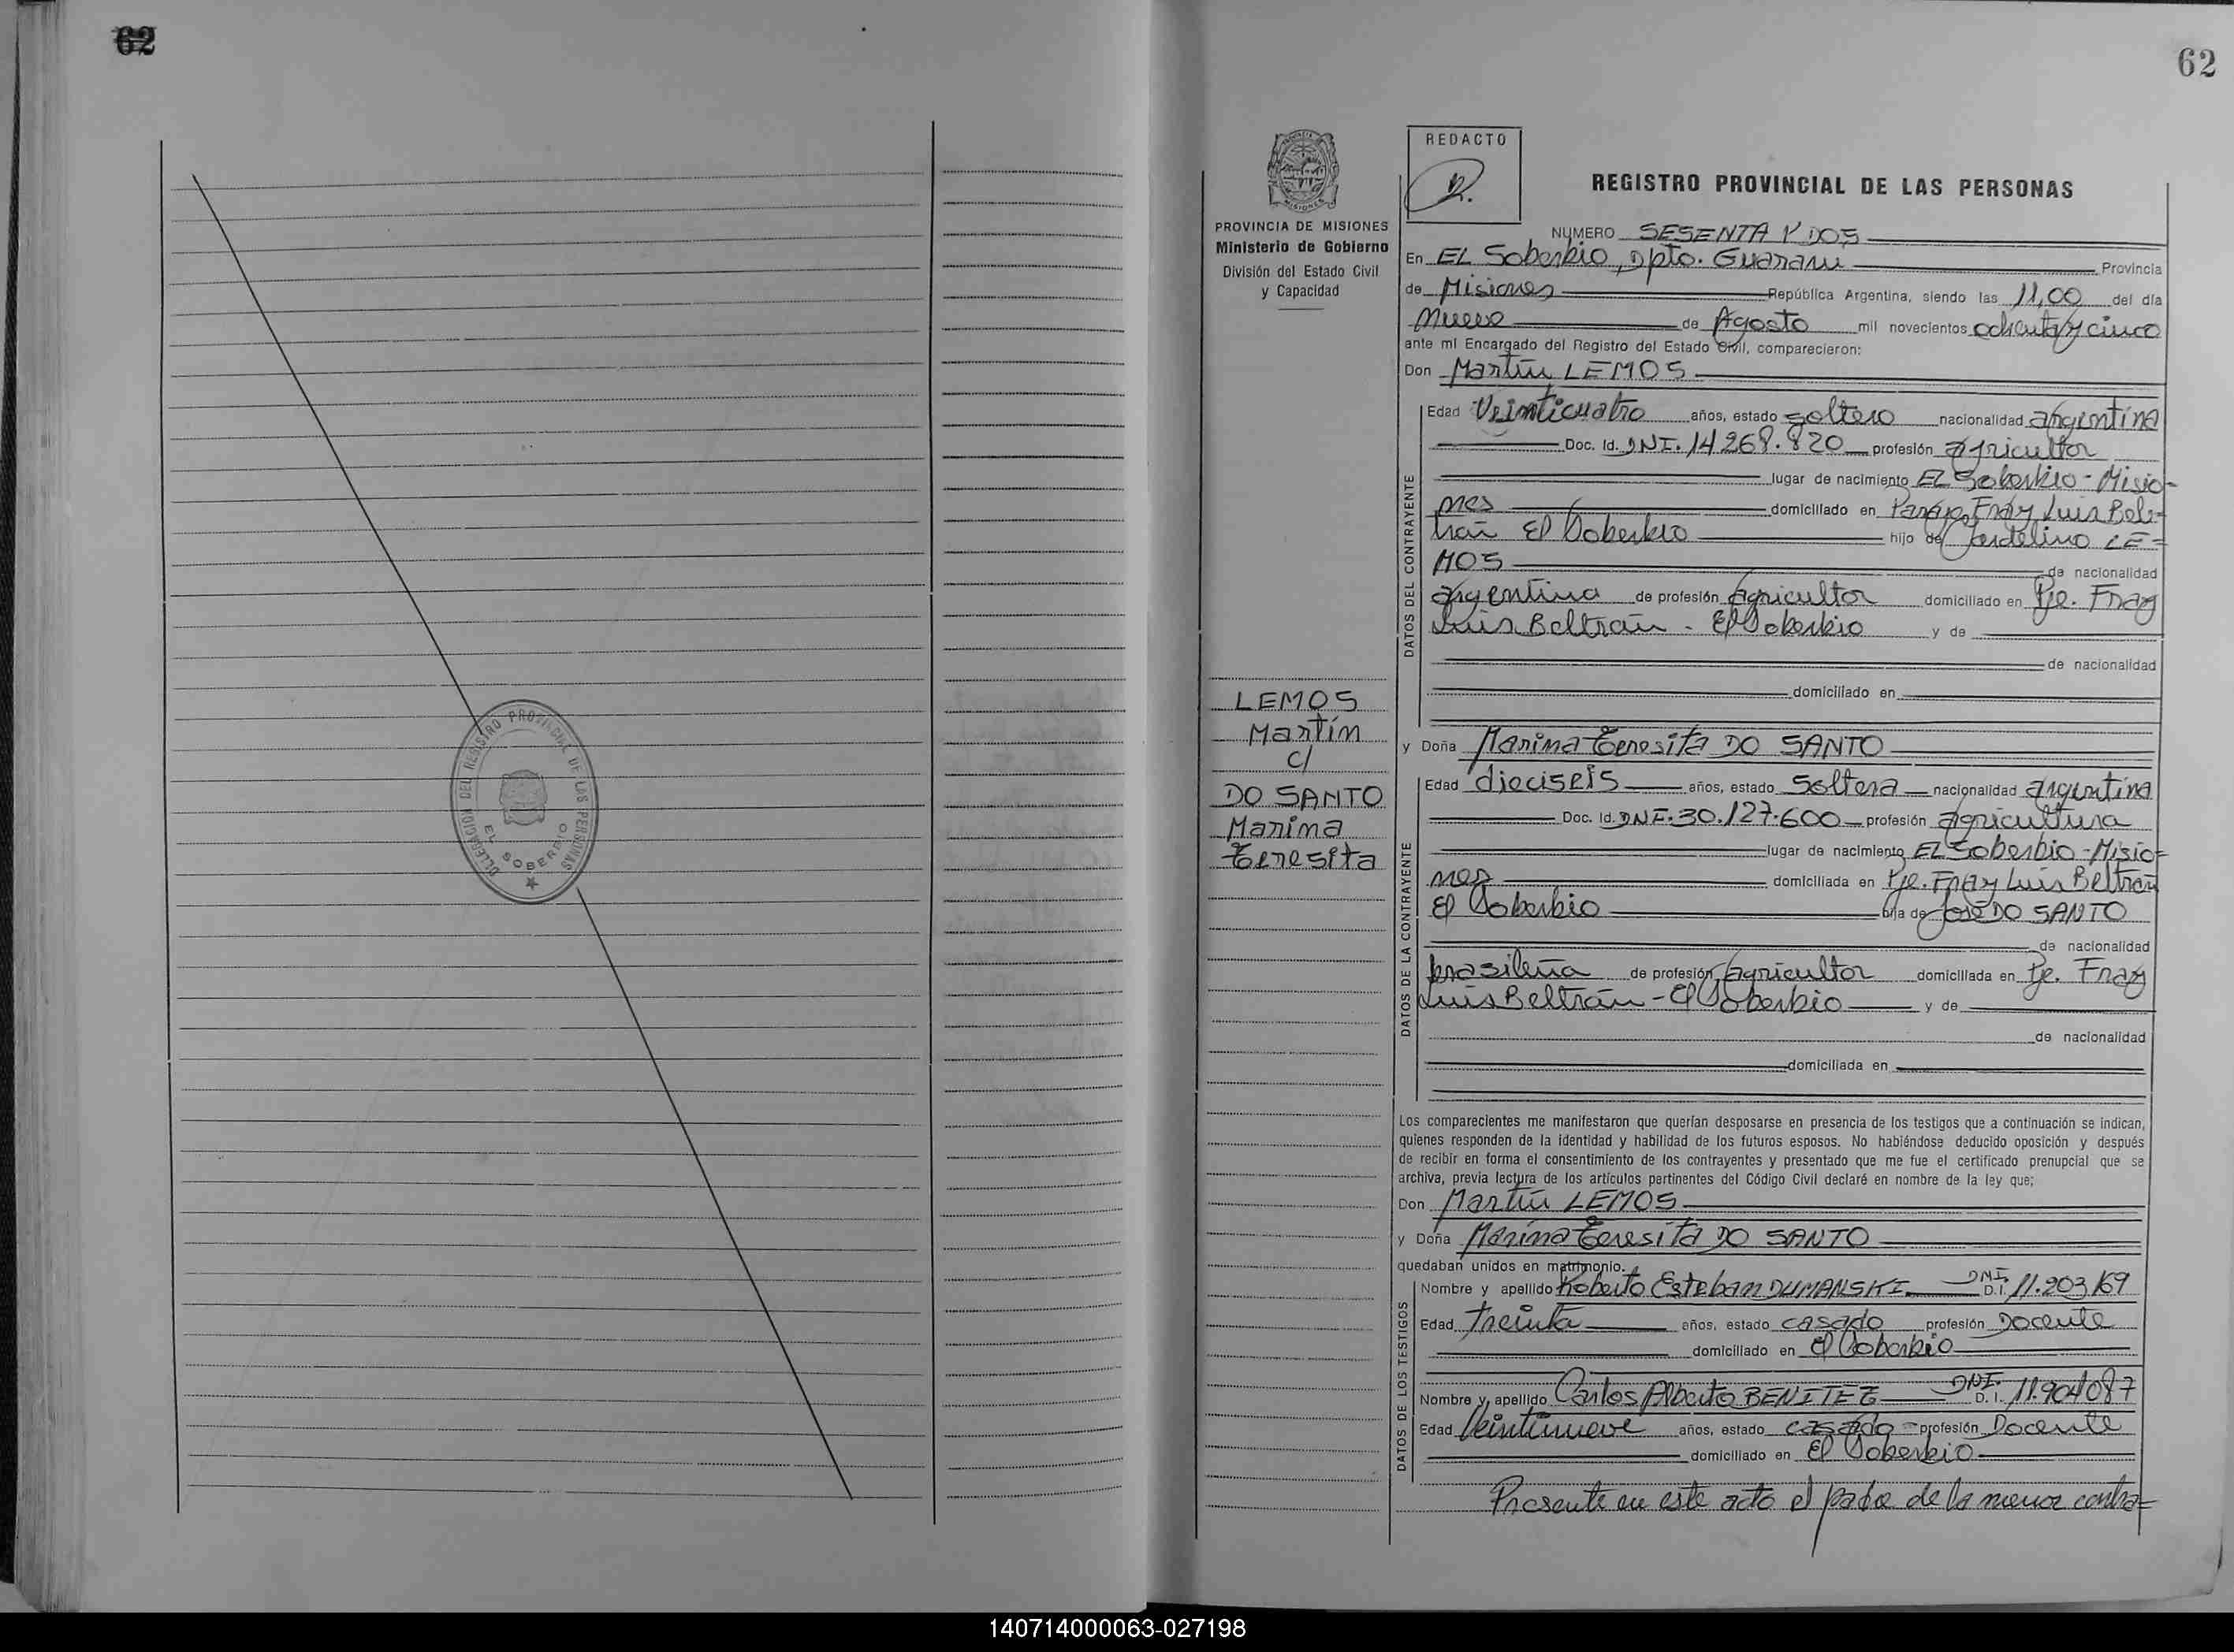 62
DELEGACION DEL REGISTRO PROVINCIAL DE LAS PERSONAS
EL SOBERBIO
62
PROVINCIA DE MISIONES
Ministerio de Gobierno
División del Estado Civil
y Capacidad
LEMOS
Martín
c/
DO SANTO
Marina
Teresita
REDACTO
REGISTRO PROVINCIAL DE LAS PERSONAS
NUMERO SESENTA Y DOS
En EL Soberbio, Dpto. Guarani Provincia
de Misiones República Argentina, siendo las 11,00 del día
nueve de Agosto mil novecientos ochenta y cinco
ante mí Encargado del Registro del Estado Civil, comparecieron:
Don Martín LEMOS
DATOS DEL CONTRAYENTE
Edad Veinticuatro años, estado soltero nacionalidad argentina
Doc. Id. DNI. 14268.820 profesión agricultor
lugar de nacimiento EL Soberbio - Misio-
nes domiciliado en Paraje Fray Luis Bel-
trán El Soberbio hijo de Jardelino LE-
MOS de nacionalidad
argentina de profesión agricultor domiciliado en Pje. Fray
Luis Beltrán - El Soberbio y de
de nacionalidad
domiciliado en
y Doña Marina Teresita DO SANTO
DATOS DE LA CONTRAYENTE
Edad dieciseis años, estado soltera nacionalidad argentina
Doc. Id. DNI. 30.127.600 profesión agricultura
lugar de nacimiento EL Soberbio - Misio-
nes domiciliada en Pje. Fray Luis Beltrán
El Soberbio hija de José DO SANTO
de nacionalidad
brasileña de profesión agricultor domiciliada en Pje. Fray
Luis Beltrán - El Soberbio y de
de nacionalidad
domiciliada en
Los comparecientes me manifestaron que querían desposarse en presencia de los testigos que a continuación se indican,
quienes responden de la identidad y habilidad de los futuros esposos. No habiéndose deducido oposición y después
de recibir en forma el consentimiento de los contrayentes y presentado que me fue el certificado prenupcial que se
archiva, previa lectura de los artículos pertinentes del Código Civil declaré en nombre de la ley que;
Don Martín LEMOS
y Doña Marina Teresita DO SANTO
quedaban unidos en matrimonio.
DATOS DE LOS TESTIGOS
Nombre y apellido Roberto Esteban DUMANSKI DNI. D.I. 11.203169
Edad treinta años, estado casado profesión Docente
domiciliado en El Soberbio
Nombre y apellido Carlos Alberto BENITEZ DNI. D.I. 11.904087
Edad Veintinueve años, estado casado profesión Docente
domiciliado en El Soberbio
Presente en este acto el padre de la menor contra-
140714000063-027198